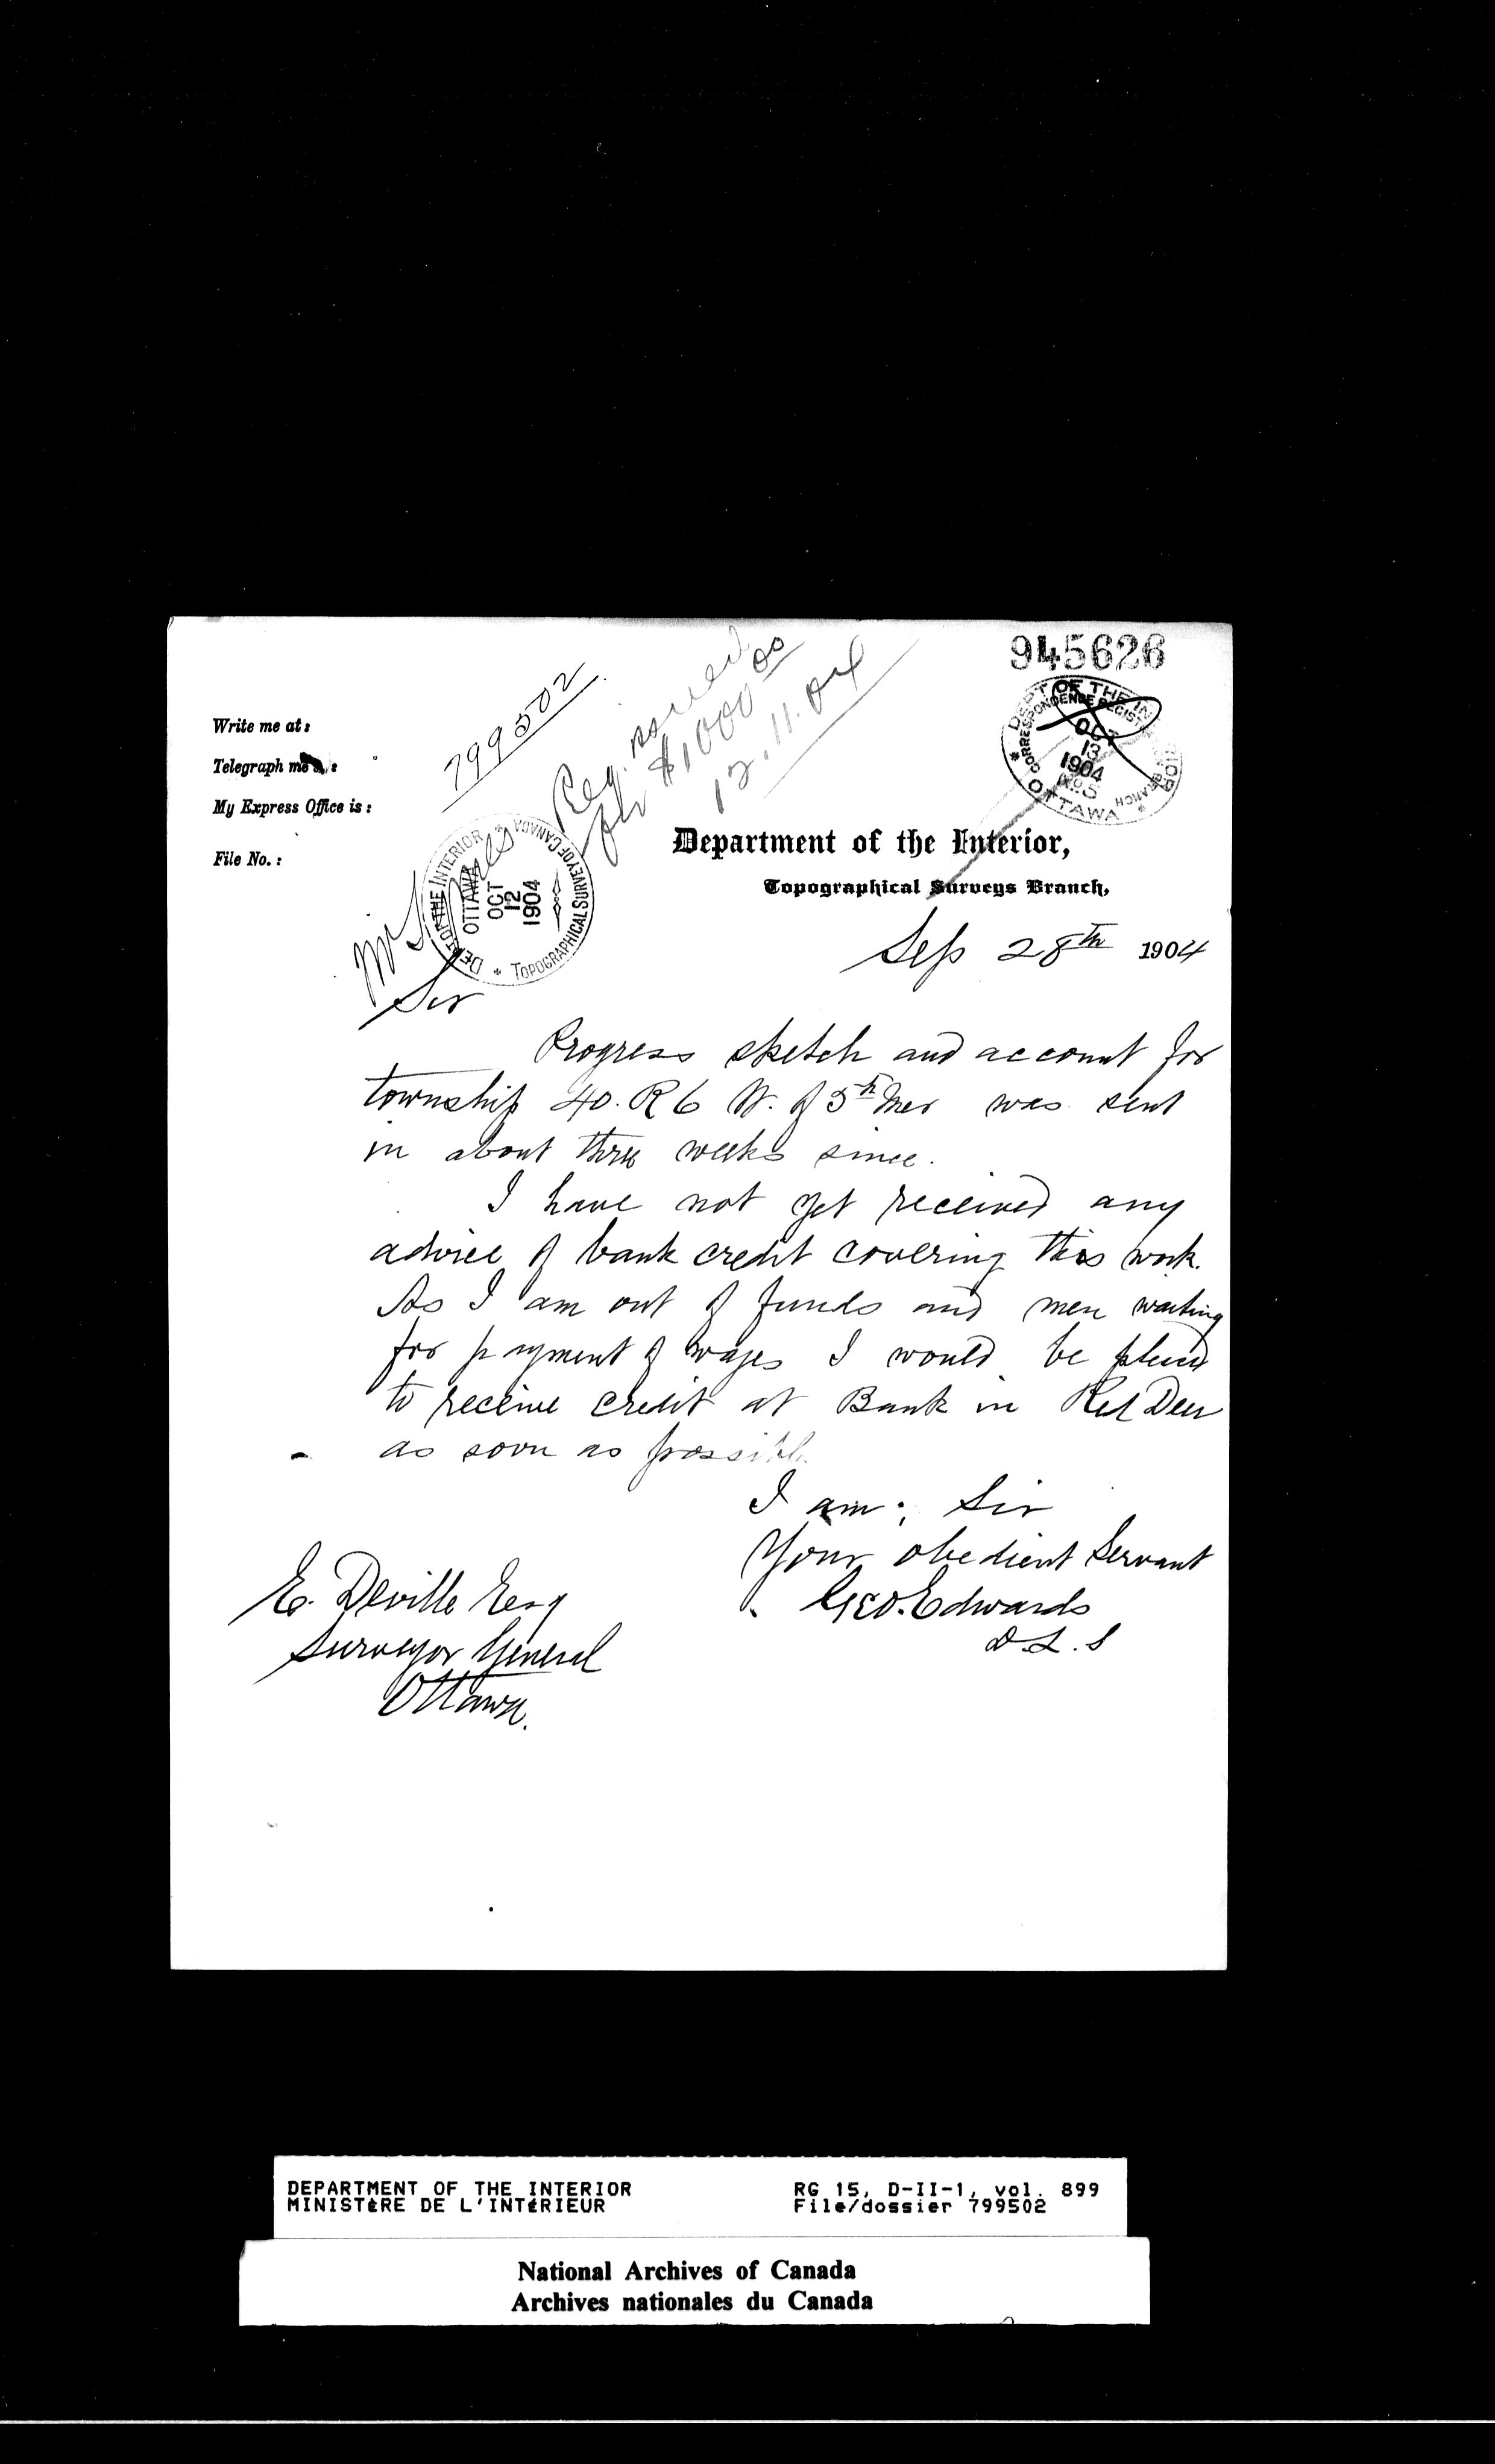 945626
DEPT OF THE INTERIOR
CORRESPONDENCE REGIST BRANCH
OCT
13
1904
No. 5
OTTAWA
799502
Req. issued
for $1000 00
12.11.04
Write me at:
Telegraph me :
My Express Office is:
File No.:
DEPT OF THE INTERIOR
OTTAWA
OCT
12
1904
TOPOGRAPHICAL SURVEY OF CANADA
Mr
Department of the Interior,
Topographical Surveys Branch,
Sep 28th 1904
Sir
Progress sketch and account for
township 40. R 6 W. of 5th Mer was sent
in about three weeks since.
I have not yet received any
advice of bank credit covering this work.
As I am out of funds and men waiting
for payment of wages I would be pleased
to receive credit at Bank in Red Deer
as soon as possible
I am; Sir
Your obedient Servant
Geo. Edwards
D.L.S
E. Deville Esq
Surveyor General
Ottawa.
DEPARTMENT OF THE INTERIOR
MINISTÈRE DE L'INTÉRIEUR
RG 15, D-II-1, vol. 899
File/dossier 799502
National Archives of Canada
Archives nationales du Canada